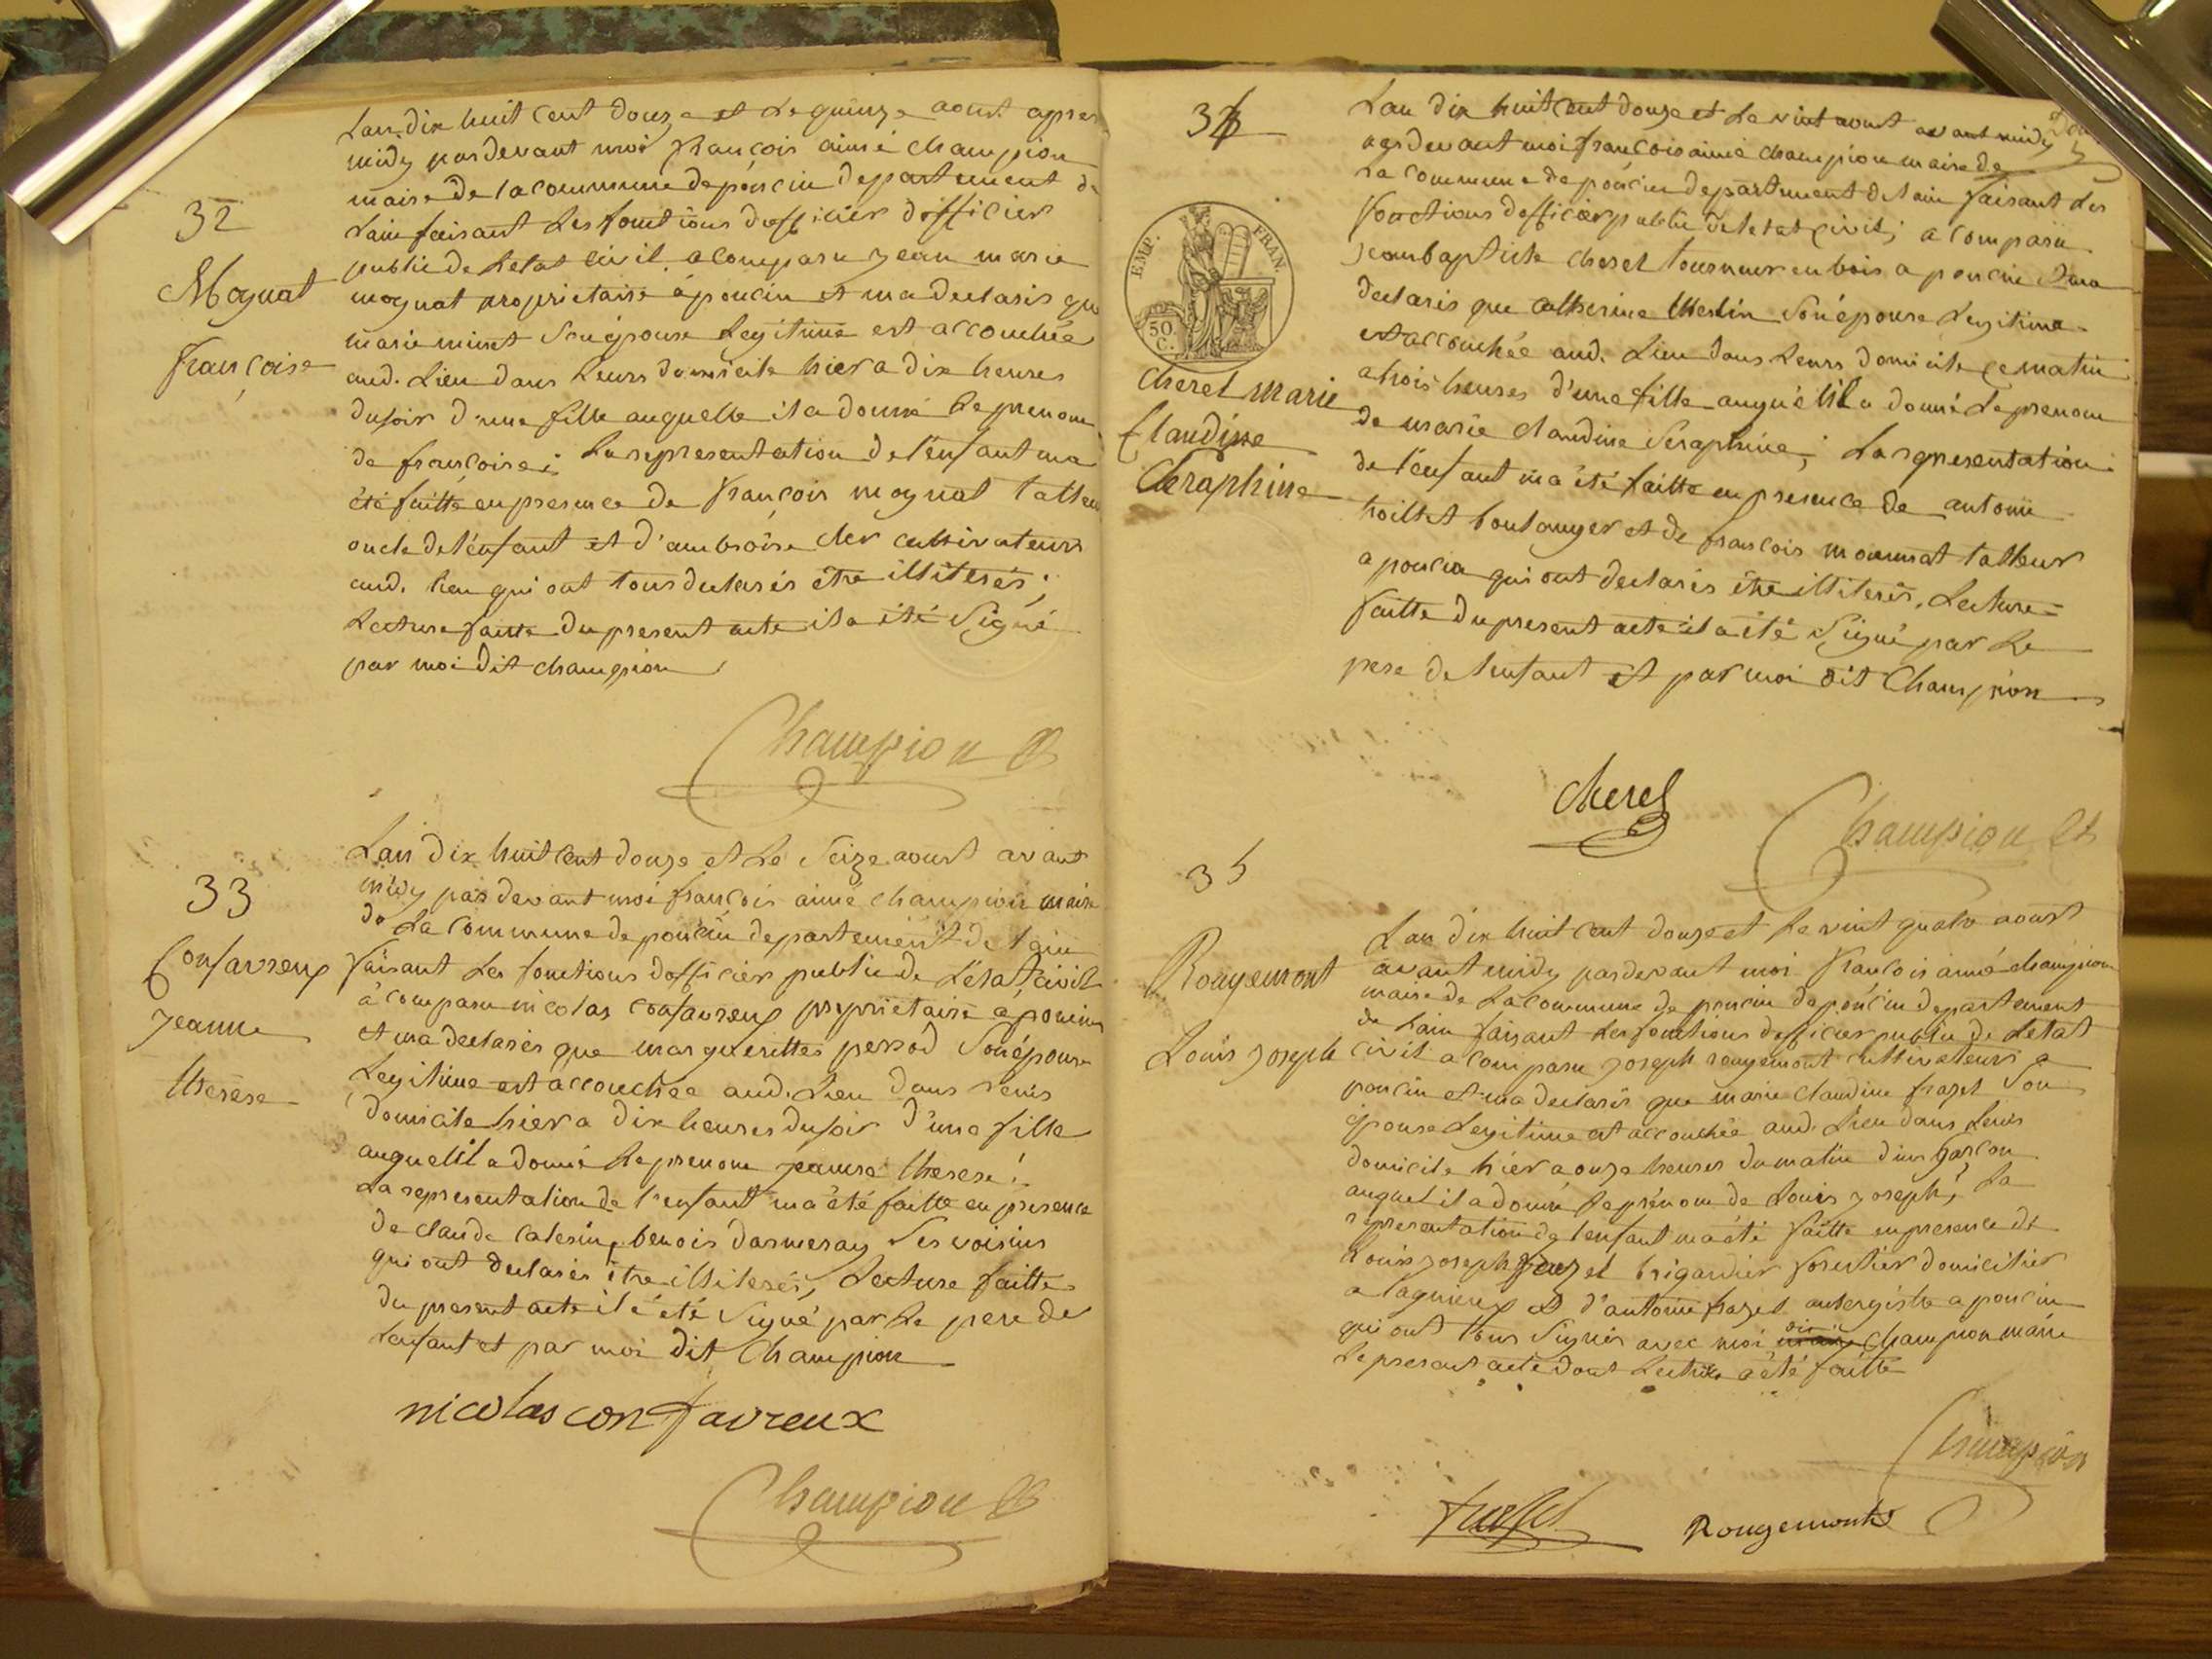 32
Mognat
françoise
Lan dix huit cent douze et le quinze aoust apres
midy pardevant moi françois aimé champion
maire de la commune de poncin departement de
Lain faisant les fonctions dofficier dofficier
public de Letat civil a comparu jean marie
mognat proprietaire a poncin et ma declaris que
marie miret son épouse Legitime est accouchée
aud. Lieu dans leurs domicile hier a dix heures
du soir d'une fille auquelle il a donné le prenom
de françoise; La representation de l'enfant ma
été faitte en presence de françois mognat tailleur
oncle de l'enfant et d'ambroise cler cultivateurs
aud. lieu qui ont tous declarés être illiterés;
Lecture faitte du present acte il a été Signé
par moi dit champion
Champion
33
Confavreux
jeanne
therese
Lan dix huit cent douze et le Seize aoust avant
midy par devant moi françois aimé champion maire
de la commune de poncin departement de lain
faisant les fonctions dofficier public de Létat civil
a comparu nicolas confavreux proprietaire a poncin
et ma declarés que marguerittes perrod son épouse
Legitime est accouchée aud. Lieu dans leurs
domicile hier a dix heures du soir d'une fille
auquel il a donné le prenom jeanne therese;
La representation de l'enfant ma été faitte en presence
de claude benois ses voisins
qui ont declarés être illiterés, Lecture faitte
du present acte il a été Signé par le pere de
Lenfant et par moi dit Champion
nicolas confavreux
Champion
34
EMP. FRAN.
50 C.
cherel marie
Claudine
Seraphine
Lan dix huit cent douze et le vint aoust avant midy
pardevant moi francois aimé champion maire de
la commune de poncin departement de lain faisant les
fonctions dofficier public de letat civil; a comparu
jean baptiste cherel tourneur en bois a poncin et ma
declaris que catherine Merlin son épouse Legitime
est accouchée aud. Lieu dans leurs domicile ce matin
a trois heures d'une fille auquel il a donné le prenom
de marie claudine Seraphine; La representation
de l'enfant ma été faitte en presence de antoine
boulanger et de francois tailleur
a poncin qui ont declarés être illiterés, Lecture
faitte du present acte il a été Signé par le
pere de lenfant et par moi dit Champion
cherel
Champion
35
Rougemont
Louis joseph
Lan dix huit cent douze et le vint quatre aoust
avant midy pardevant moi francois aimé champion
maire de la commune de poncin de poncin departement
de Lain faisant les fonctions dofficier public de Letat
civil a comparu joseph rougemont cultivateurs a
poncin et ma declaris que marie claudine frazet Son
épouse Legitime est accouchée aud. Lieu dans leurs
domicile hier a onze heures du matin d'un garçon
auquel il a donné le prénom de Louis joseph; La
representation de lenfant ma été faitte en presence de
Louis joseph frazet brigardier forestier domicilier
a lagnieux et d'antoine frazet aubergiste a poncin
qui ont tous Signés avec moi dit champion maire
Le present acte dont Lecture a été faitte
Champion
Rougemont